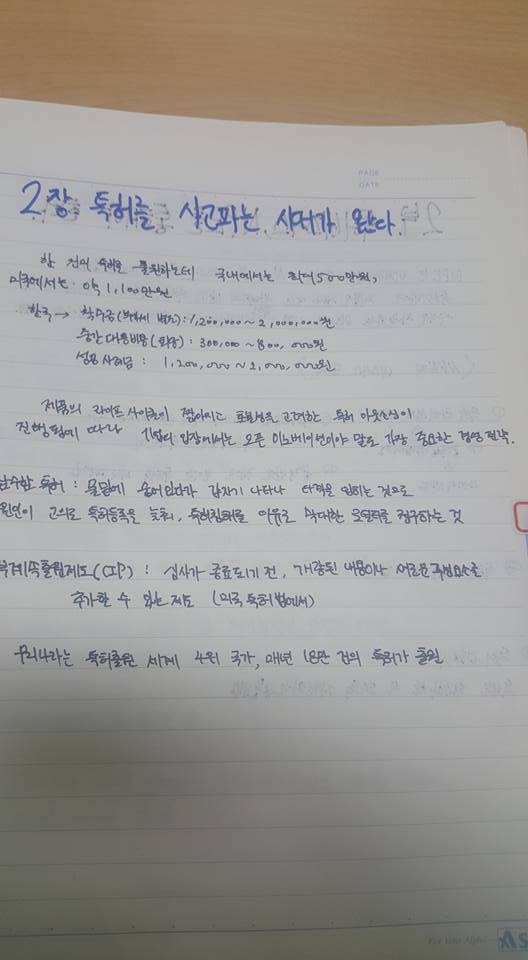 PAGE
DATE
2장. 특허를 사고파는 시대가 왔다.
한 건의 특허를 출원하는데 국내에서는 최대 500만원,
미국에서는 약 1,100만원
한국 → 착수금(부가세 별도): 1,200,000 ~ 2,000,000원
중간 대응비용(회당) : 300,000 ~ 800,000원
성공 사례금 : 1,200,000 ~ 2,000,000원
제품의 라이프 사이클이 짧아지고 효율성을 고려한 특허 아웃소싱이
진행됨에 따라 기업의 입장에서는 오픈 이노베이션이야 말로 가장 중요한 경영 전략.
잠수함 특허 : 물밑에 숨어있다가 갑자기 나타나 타격을 입히는 것으로
출원인이 고의로 특허등록을 늦춰, 특허침해를 이유로 막대한 로열티를 청구하는 것
부분계속출원제도(CIP) : 심사가 종료되기 전, 개량된 내용이나 새로운 구성요소를
추가할 수 있는 제도 (미국 특허법에서)
우리나라는 특허출원 세계 4위 국가, 매년 18만 건의 특허가 출원
For Your Alpha
AS